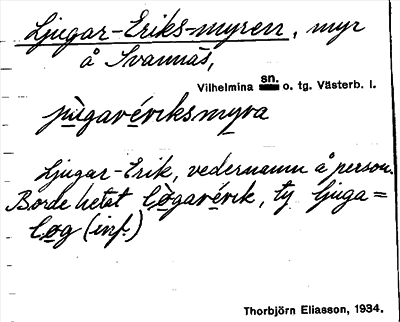 Ljugar-Eriks-myren, myr
å Svannäs,
Vilhelmina sn. o. tg. Västerb. l.
jùgavérıksmyra
Ljugar-Erik, vedernamn å person.
Borde hetat lø̀gavérık, ty ljuga =
løg (inf.)
Thorbjörn Eliasson, 1934.